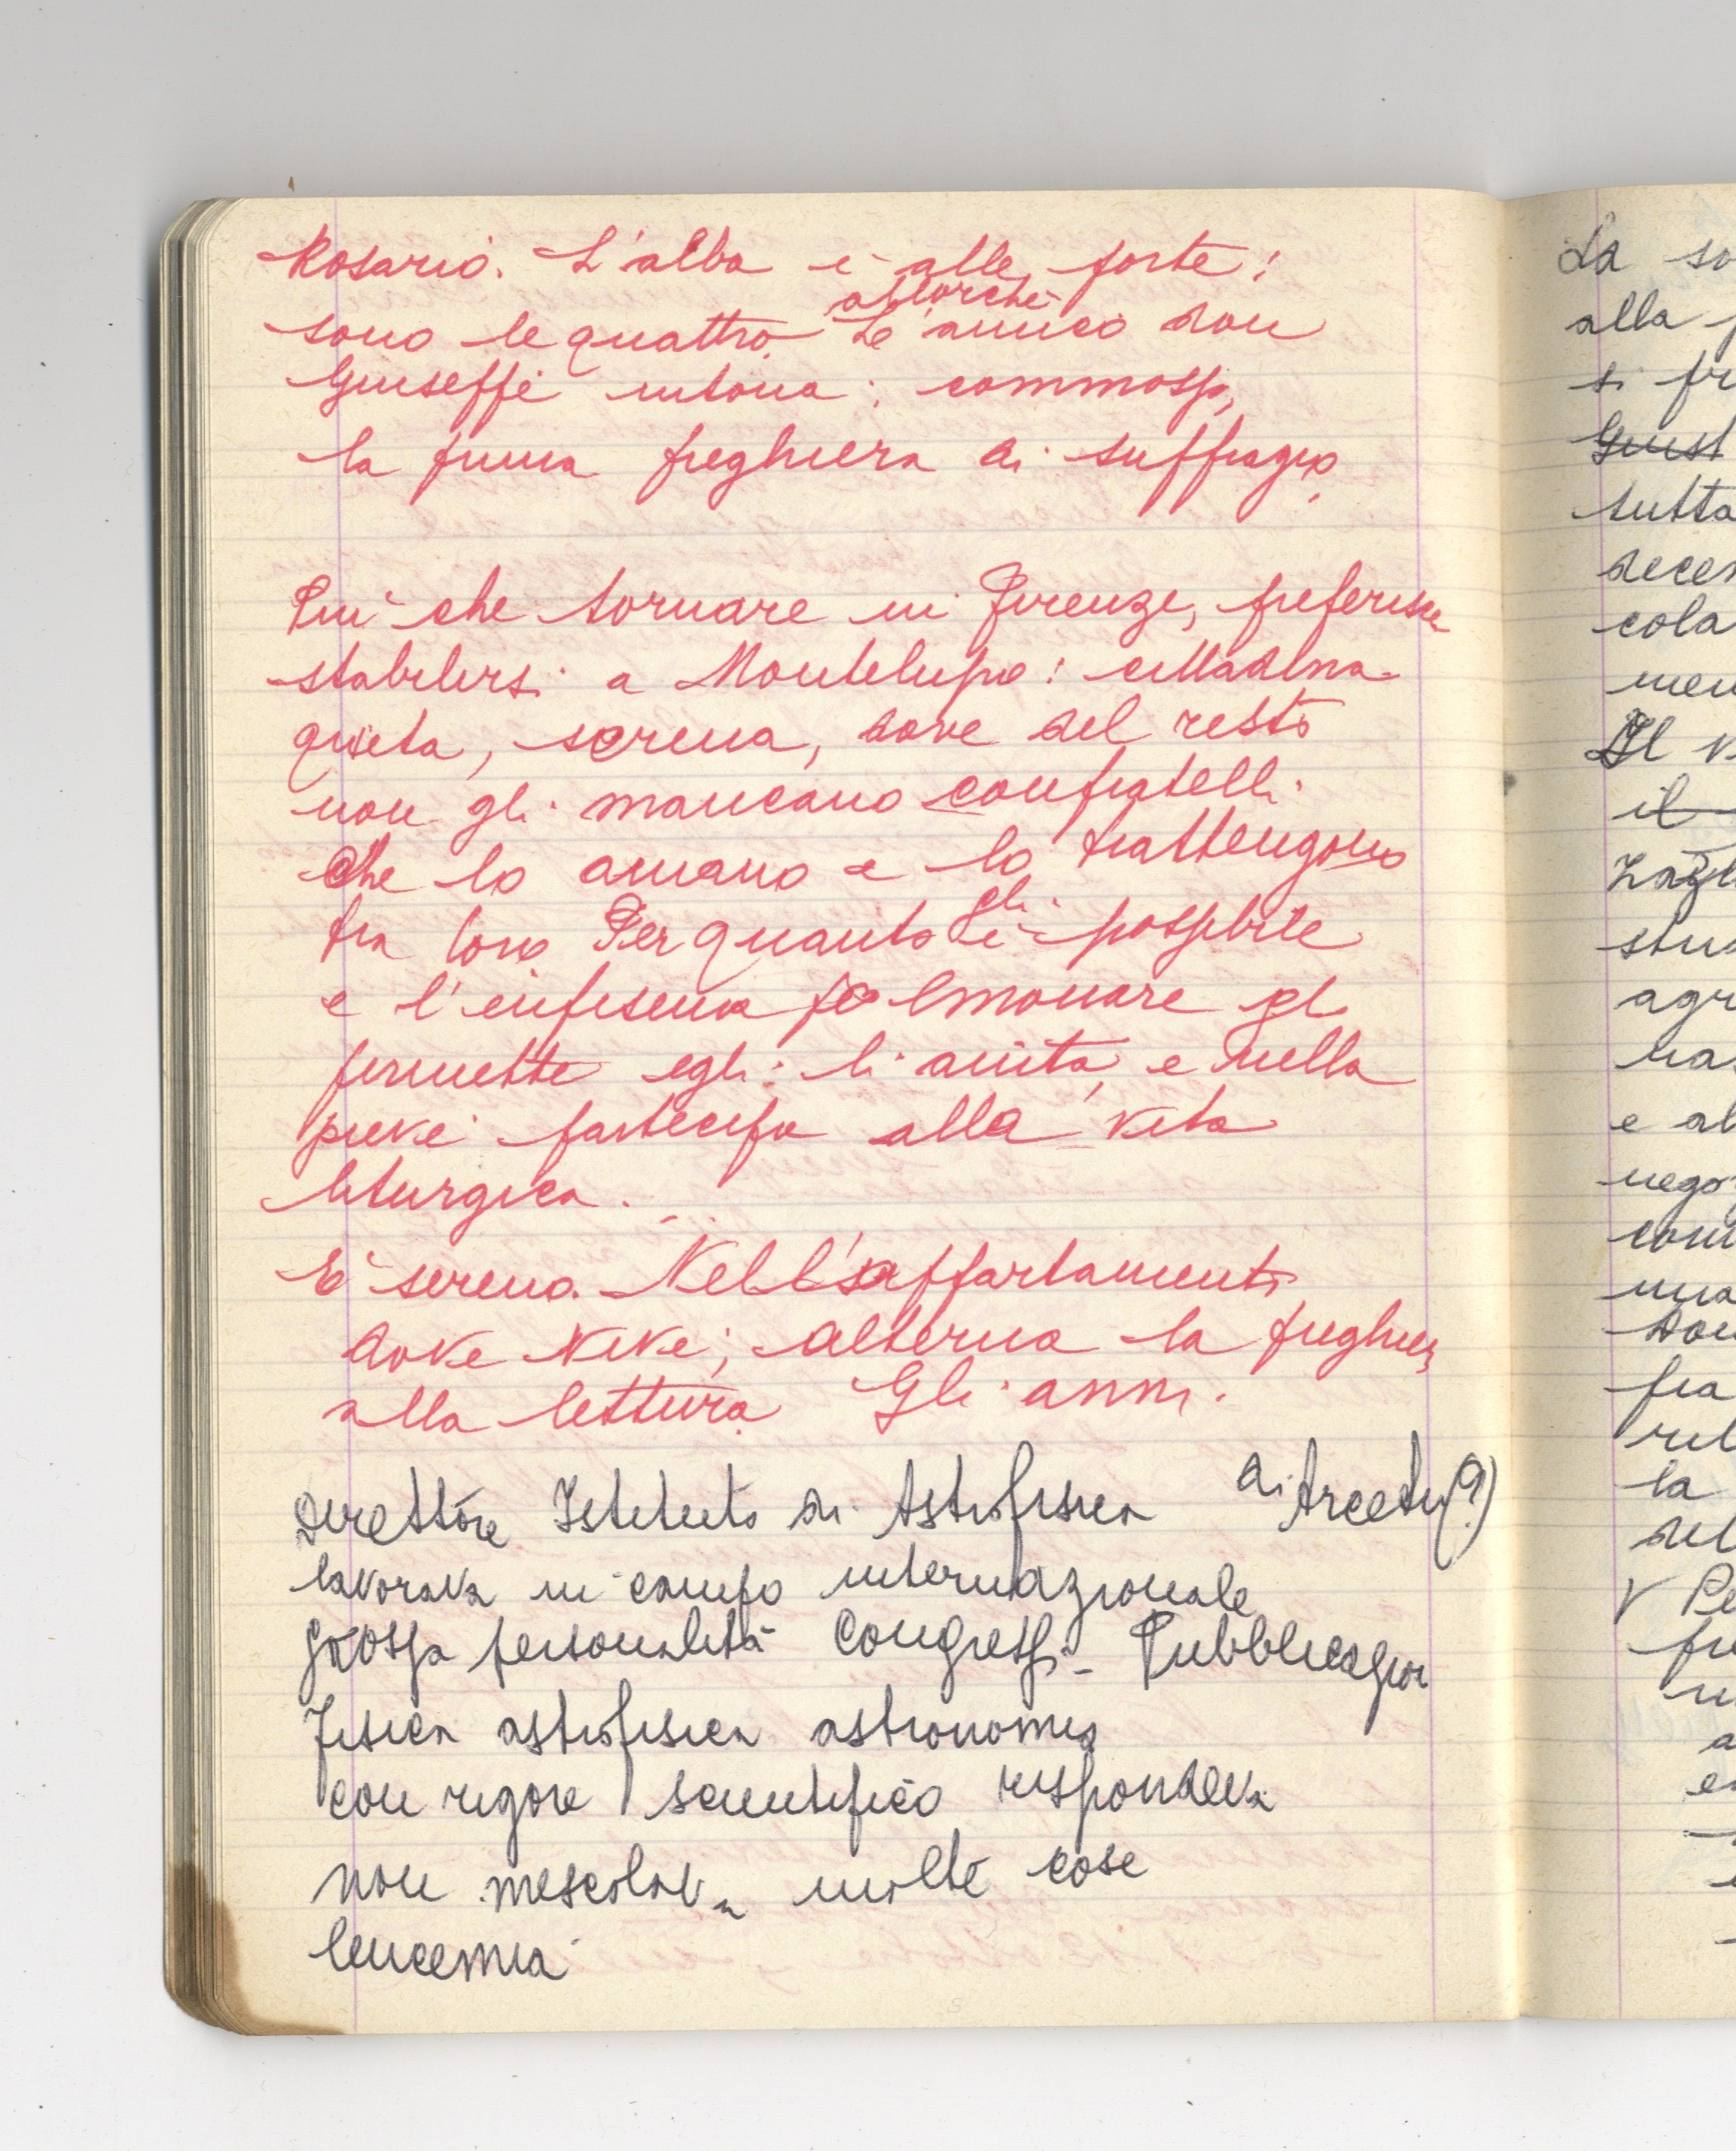 Rosario. L'alba è alle porte:
sono le quattro allorché L'amico don
Giuseppe intona: commosso,
la prima preghiera di suffragio.
Più che tornare in Firenze, preferisce
stabilirsi a Montelupo: cittadina
quieta, serena, dove del resto
non gli mancano confratelli
che lo amano e lo trattengono
tra loro Per quanto gli è possibile
e l'enfisema polmonare gli
permette egli li aiuta, e nella
pieve partecipa alla vita
liturgica.
E' sereno. Nell'appartamento
dove vive; alterna la preghiera
alla lettura. Gli anni.
Direttore Istituto di Astrofisica di Arcetri (?)
lavorava in campo internazionale
grossa personalità Congressi - Pubblicazioni
Fisica astrofisica astronomia
con rigore scientifico rispondeva
non mescolava molte cose
leucemia
La so
alla p
si fr
Giust
tutta
decen
cola
men
Il v
il
stud
agr
nas
e al
nego
com
una
fra
la
del